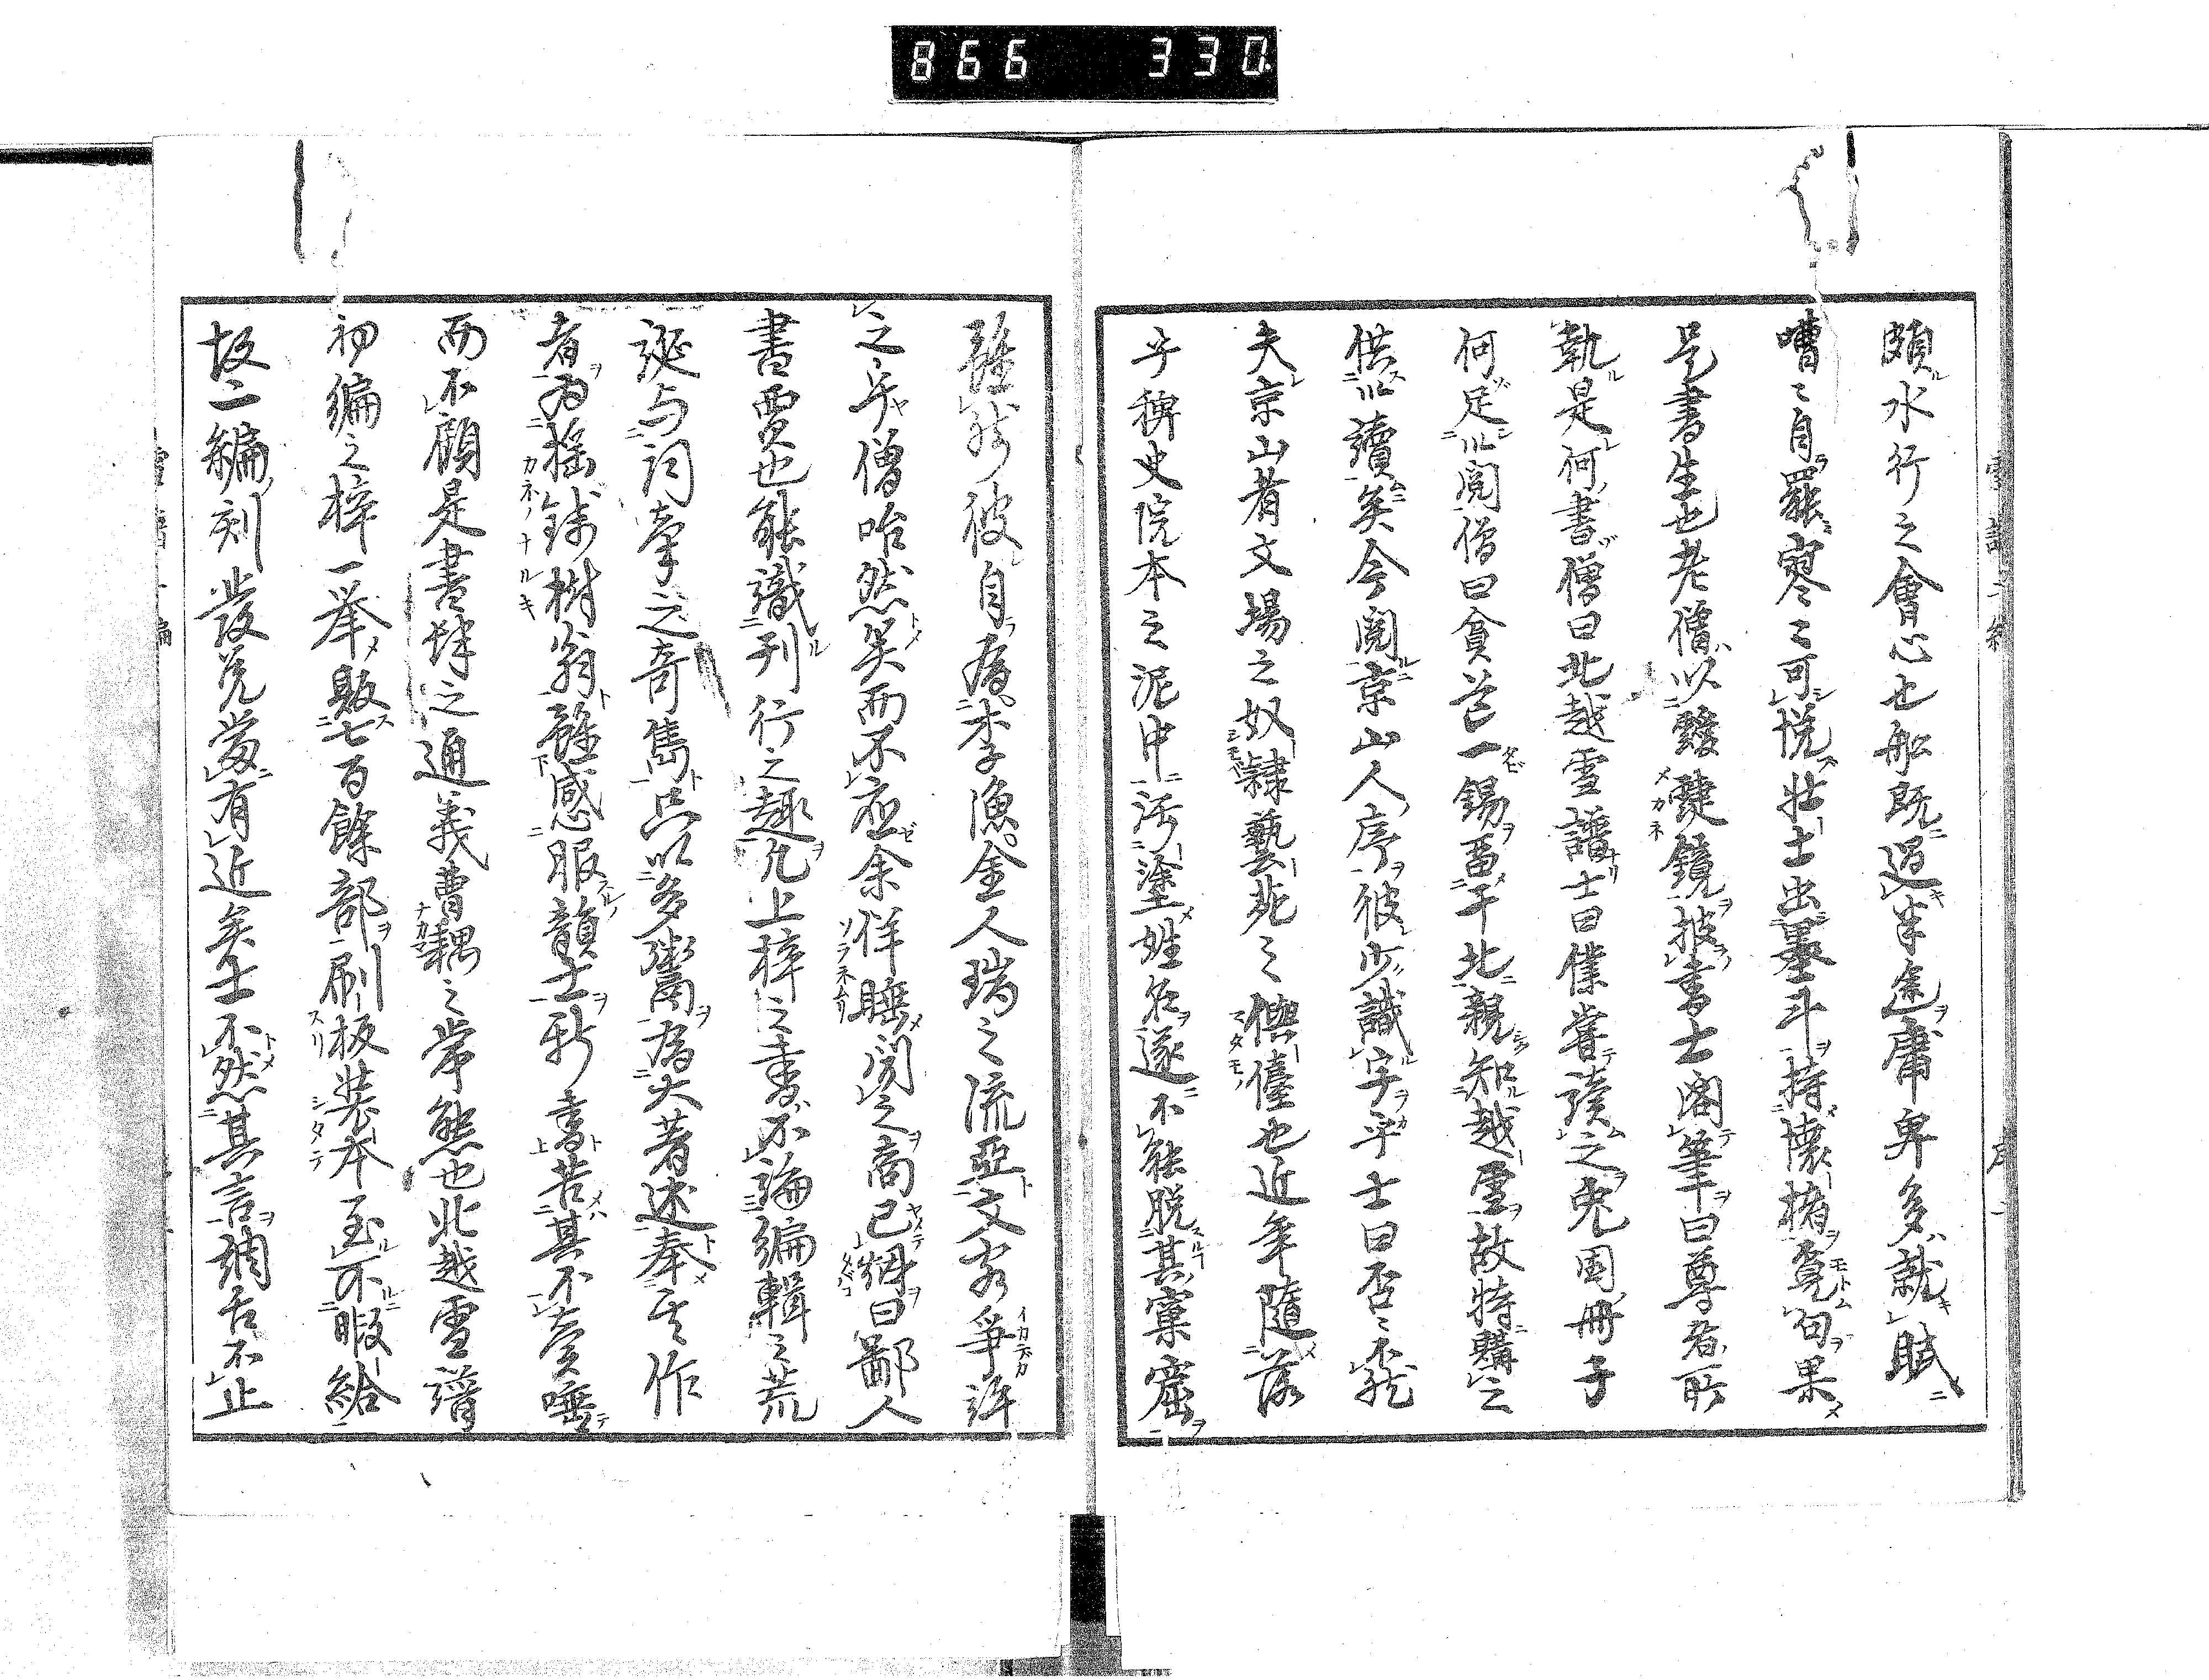 866 330
頗水行之會心也船既過半途庸卑多就賦
嘈〻自罷寥〻可悦壮士出墨斗持懐楮覓句果
是書生也老僧以靉靆鏡披書士閣筆曰尊者所
執是何書僧曰北越雪譜士曰僕嘗讀之兎園冊子
何足以閲僧曰貧芒一錫畱于北親知越雪故特購之
供以讀矣今閲京山人序彼少識字乎士曰否〻
夫京山者文場之奴隷藝苑之儓也近年隨落
乎稗史院本之泥中汚塗姓名遂不能脱其窠窟
雖然彼自為李漁金人瑞之流亞文客爭許
之乎僧咍然笑而不応余佯睡聞之商已烟曰鄙人
書賈也能識刊行之趣凡上梓之書不論編輯之荒
誕与詞章之奇雋只以多鬻為大著述奉其作
者為揺銭樹翁雖感服韻士新書苦其不賣唾
而不顧是書肆之通義曹耦之常態也北越雪譜
初編之梓一挙販七百餘部刷板装本至不暇給
故二編刻發兌當有近矣士不然其言鼓舌不止